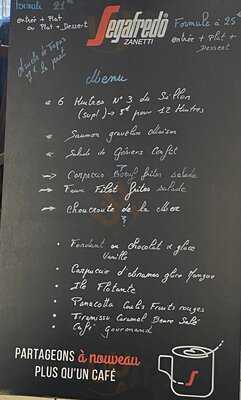 Formule 21€
entrée + Plat
ou Plat + Dessert
Segafredo
ZANETTI
Formule à 25€
entrée + Plat
+ Dessert
Menu
6 Huitres N°3 de
(supl) → 5€ pour 12 Huitres
Saumon gravelax Maison
Salade de Gésiers Confit
Carpaccio Bœuf frites salade
Faux Filet frites salade
choucroute de la Mer
Fondant au chocolat & glace
Vanille
Carpaccio d'ananas glace Mangue
Ile Flotante
Panacotta Coulis Fruits rouges
Tiramissu Caramel Beurre Salé
Café Gourmand
PARTAGEONS à nouveau
PLUS QU'UN CAFÉ